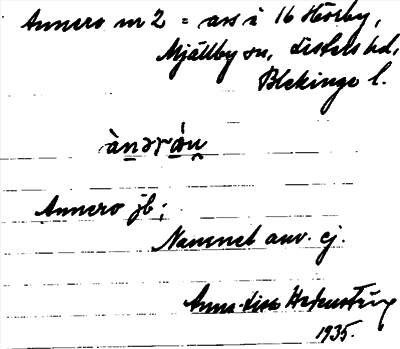 Annero nr 2 = avs i 16 Hörby,
Mjällby sn, Listers hd,
Blekinge l.
Annero jb;
Namnet anv. ej.
Anna-Lisa
1935.